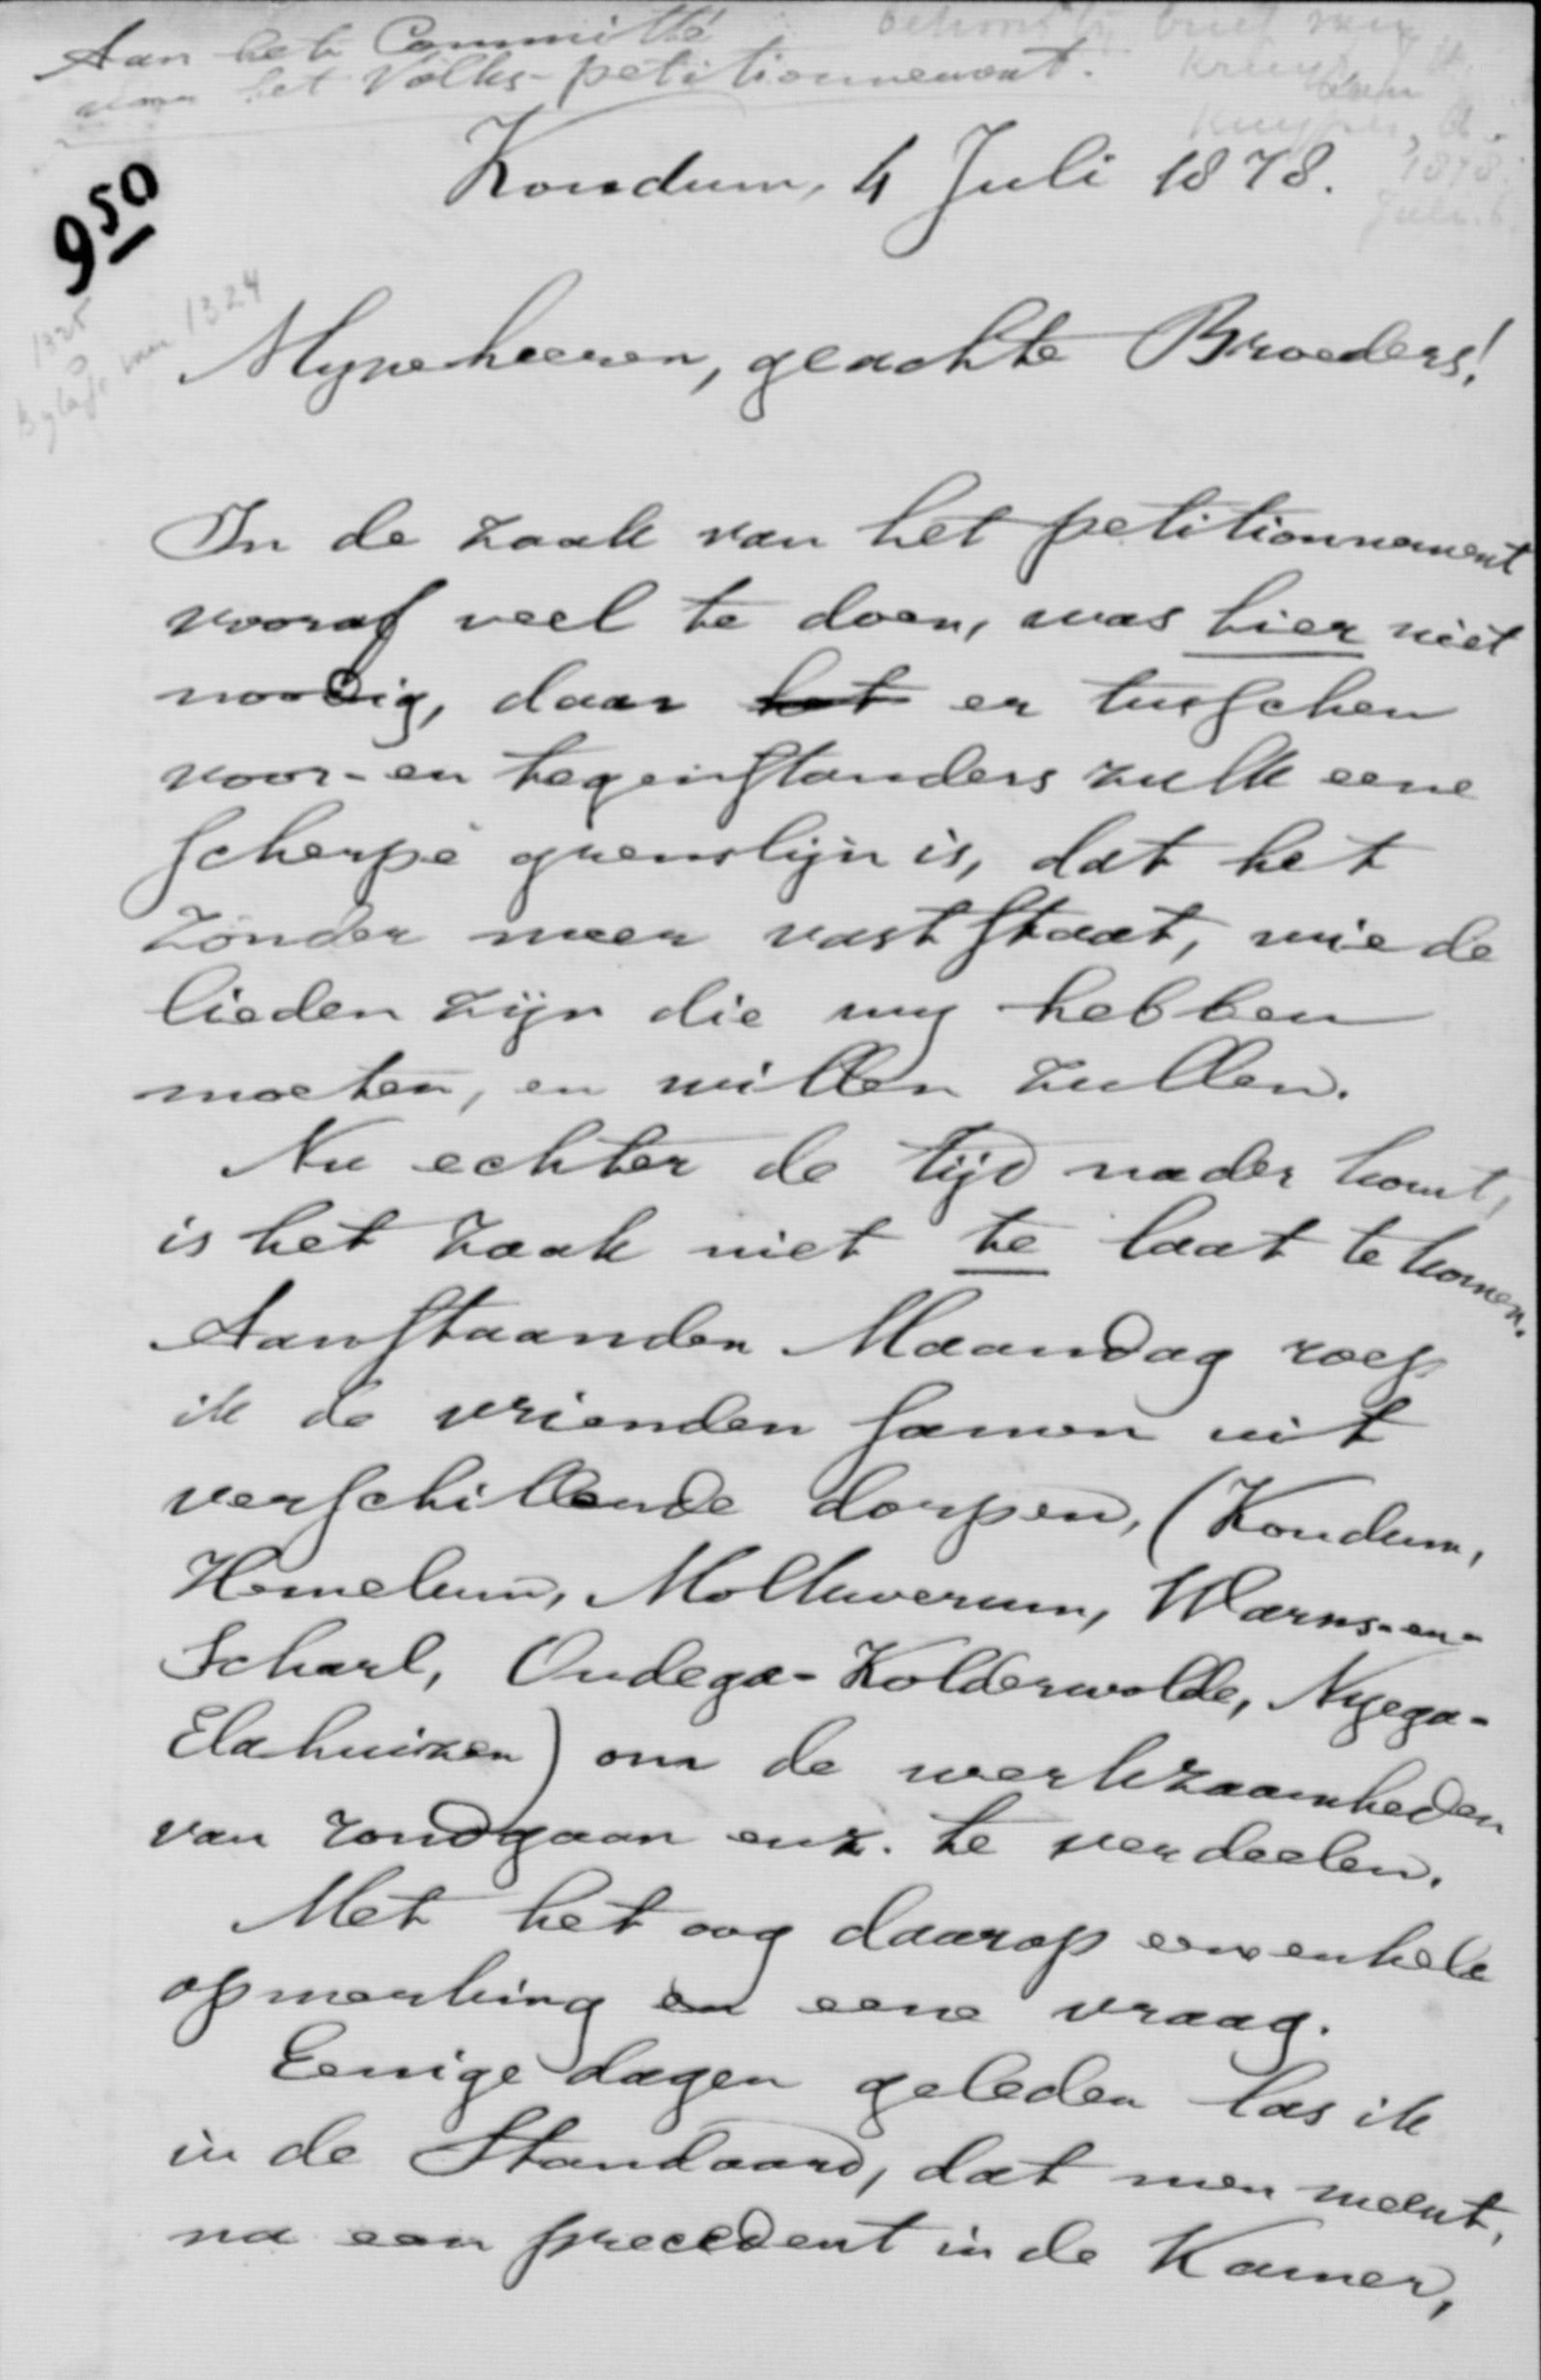 Aan het Committé
voor het Volks-petitionnement.
behoort bij brief van
Kruyf
aan
Kuyper, A.
1878
Juli. 6
Koudum, 4 Juli 1878.
9 50
1325
Bylage van 1324
Mijneheeren, geachte Broeders!
In de zaak van het petitionnement
vooraf veel te doen, was hier niet
noodig, daar het er tusschen
voor- en tegenstanders zulk eene
scherpe grenslijn is, dat het
zonder meer vaststaat, wie de
lieden zijn die wij hebben
moeten, en willen zullen.
Nu echter de tijd nader komt,
is het zaak niet te laat te komen.
Aanstaanden Maandag roep
ik de vrienden samen uit
verschillende dorpen, (Koudum,
Hemelum, Molkwerum, Warns-en-
Scharl, Oudega-Kolderwolde, Nyega-
Elahuizen) om de werkzaamheden
van rondgaan enz. te verdeelen.
Met het oog daarop eene enkele
opmerking en eene vraag.
Eenige dagen geleden las ik
in de Standaard, dat men meent,
na een precedent in de Kamer,